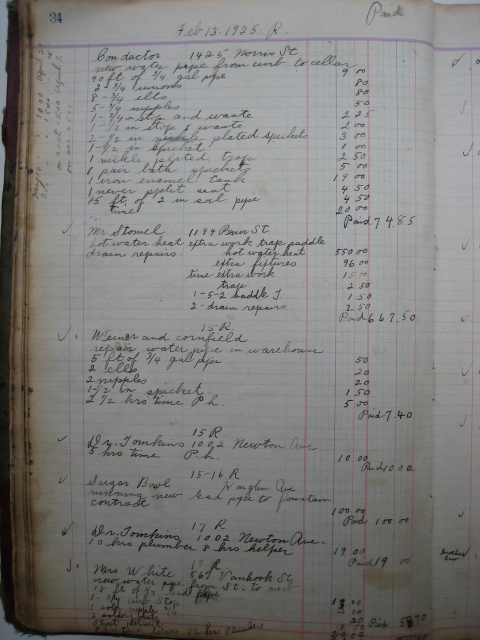 34
Feb 13. 1925. R.
Paid
Conductor 1425 Morris St.
new water pipe from curb to cellar
90 ft of 3/4 gal pipe 9 00
2 - 3/4 unions 80
8 - 3/4 ells 80
5 - 3/4 nipples 50
1 - 3/4 in stop and waste 2 25
1 - 1/2 in stop & waste 2 00
2 1/2 in plated spickets 3 00
1/2 in spicket 1 00
1 nickle plated trap 2 50
1 pair bath spickets 5 00
1 iron enamel tank 19 00
1 never split seat 4 50
15 ft of 2 in soil pipe 4 50
time 20 00
Paid 74 85
Mr. Stomel 1194 Penn St
hot water heat extra work trap saddle
drain repairs. hot water heat 550 00
extra fixtures 96 00
time extra work 15 00
trap 2 50
1-5-2 saddle T 1 50
2-drain repairs 2 50
Paid 667.50
15 R.
Weiner and cornfield
repair water pipe in warehouse
5 ft of 3/4 gal pipe 50
2 ells 20
2 nipples 20
1 1/2 in spicket 1.50
2 1/2 hrs time P.h. 5 00
Paid 7.40
15 R
Dr. Tomkins 1002 Newton Ave
5 hrs time P.h. 10 00
Paid 10 00
15-16 R
Sugar Bowl Ave
running new lead pipe to fountain
contract 100 00
Paid 100 00
17 R
Dr. Tomkins 1002 Newton Ave.
10 hrs plumber 8 hrs helper 19 00
Paid 19 00
17 R
Mrs White 567 Vanhook St
new water pipe from St. to curb
lead pipe
1 - 3/4 curb stop
Street Permit
12 hrs Plumber
Paid